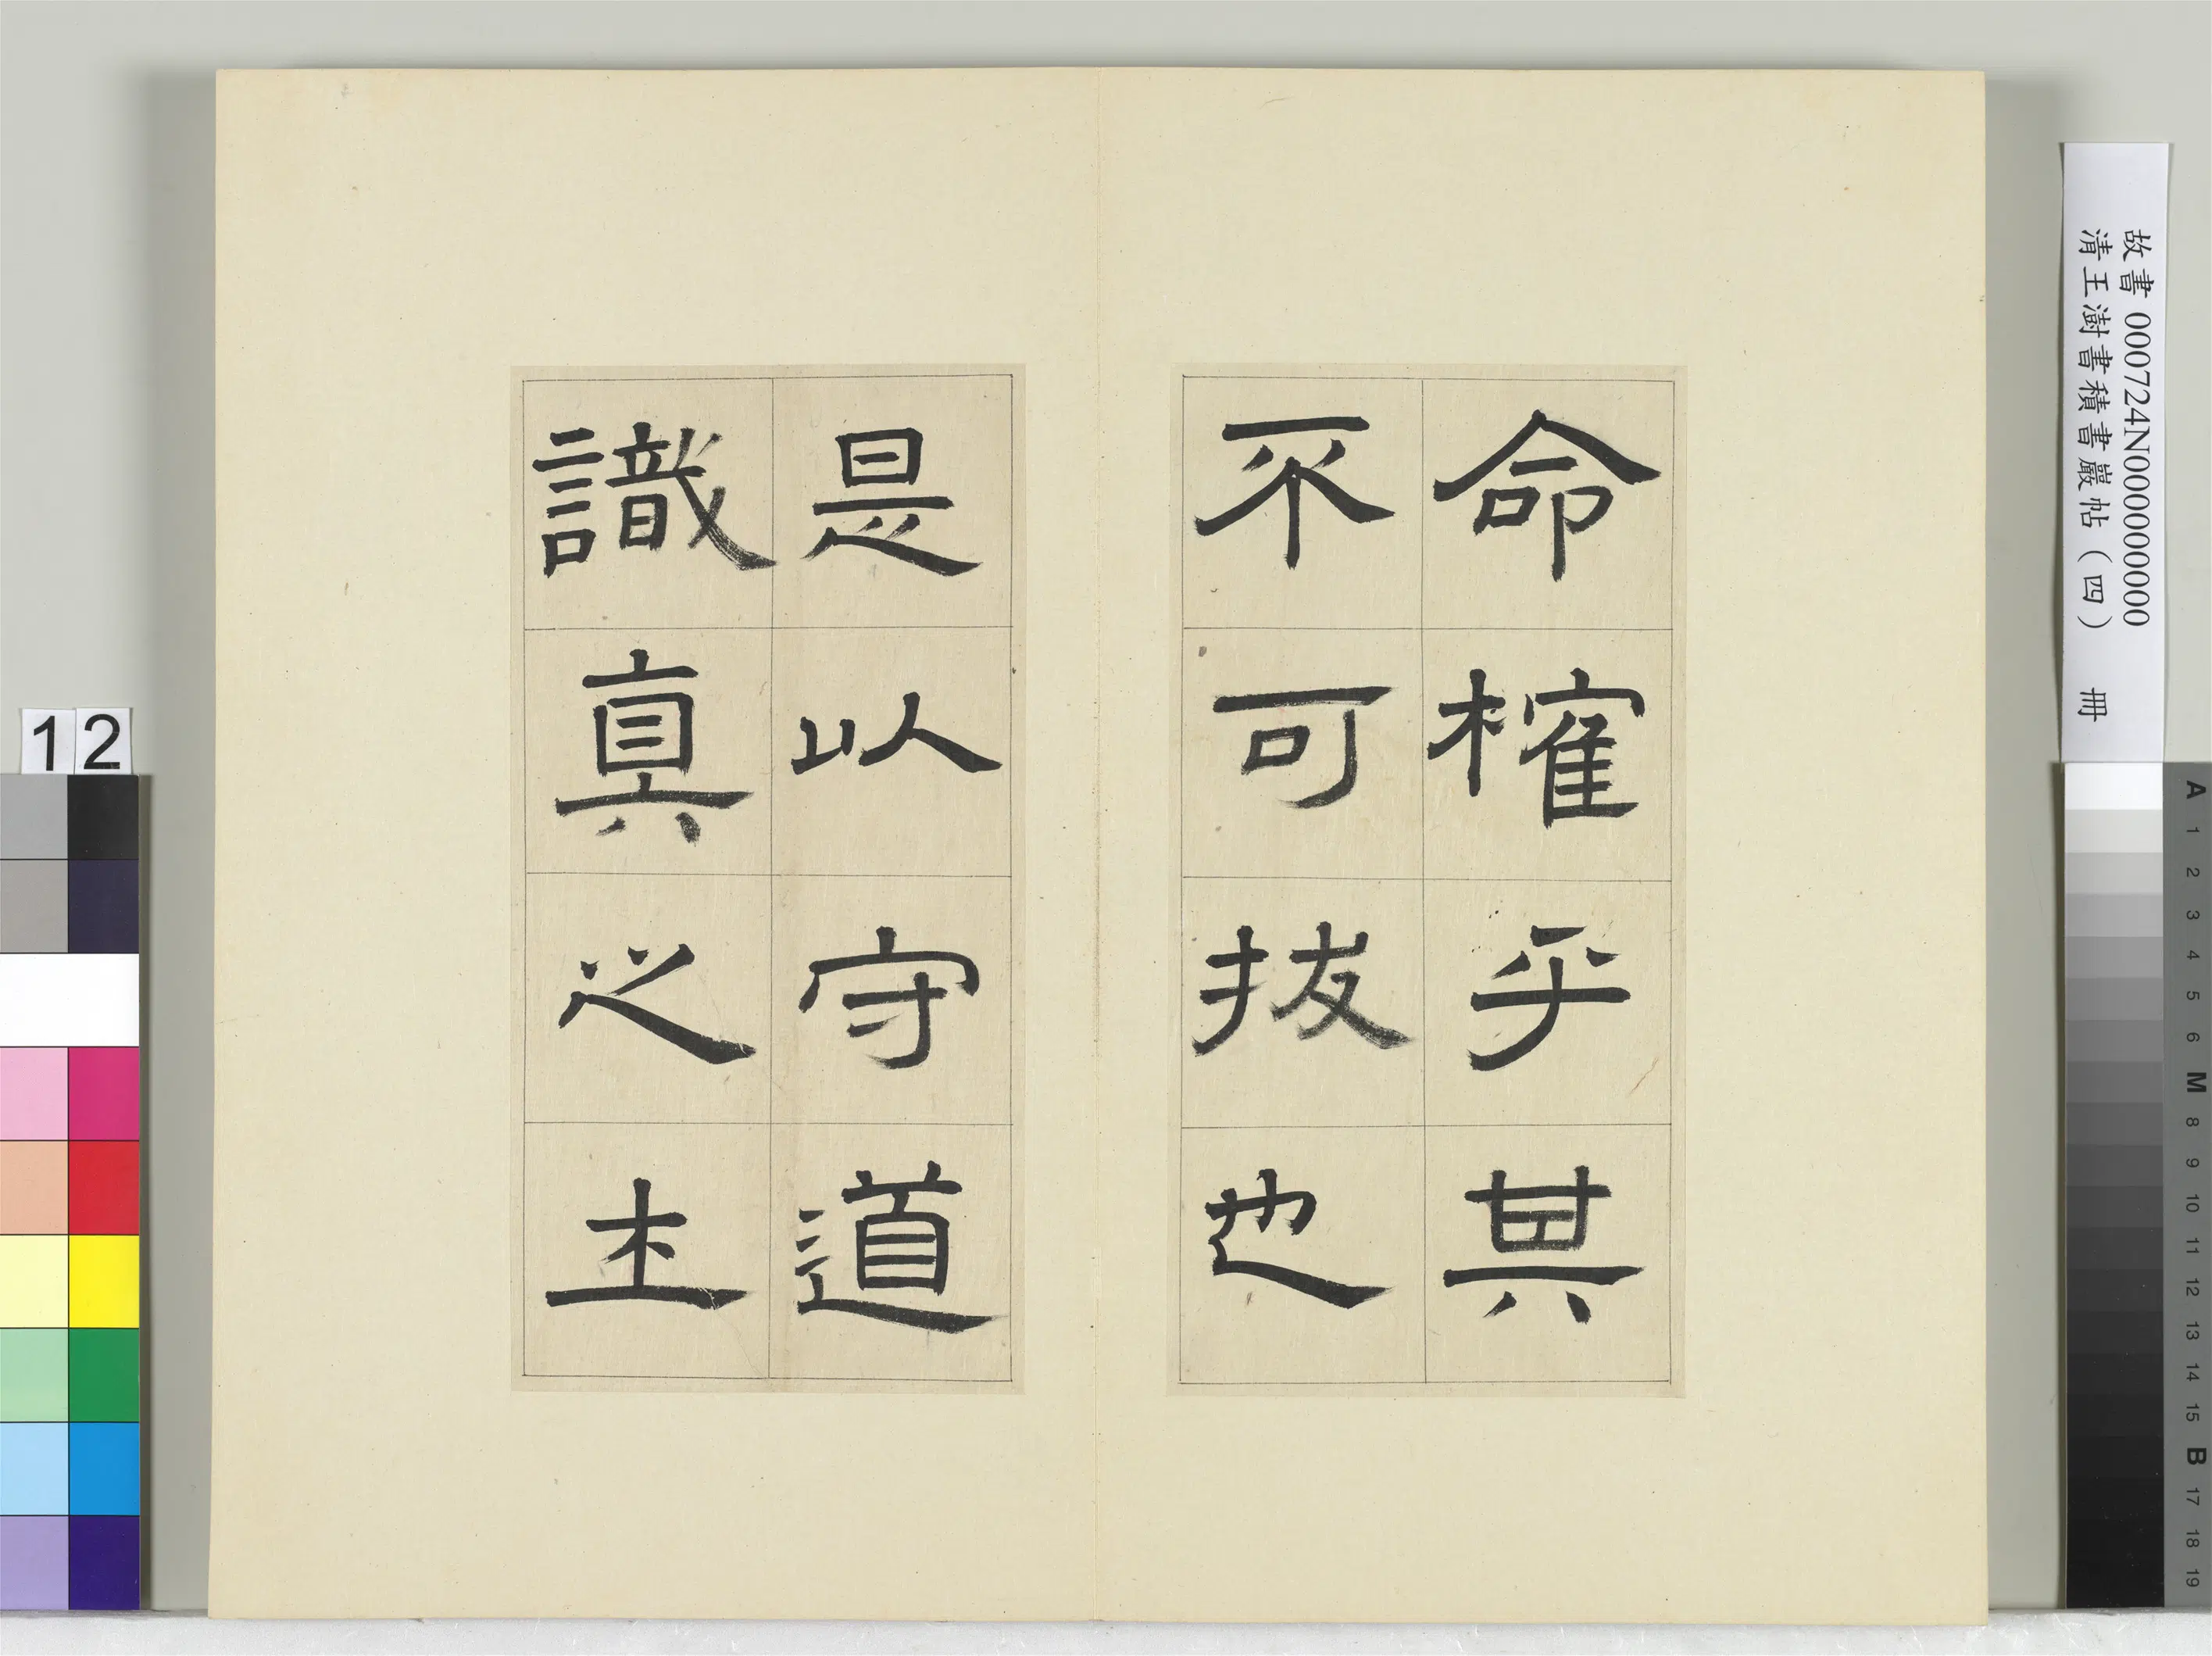 命榷乎其
不可拔也
是以守道
識真之士
故書 000724N000000000
清王澍書積書巖帖（四） 冊
12
A
1
2
3
4
5
6
M
8
9
10
11
12
13
14
15
B
17
18
19